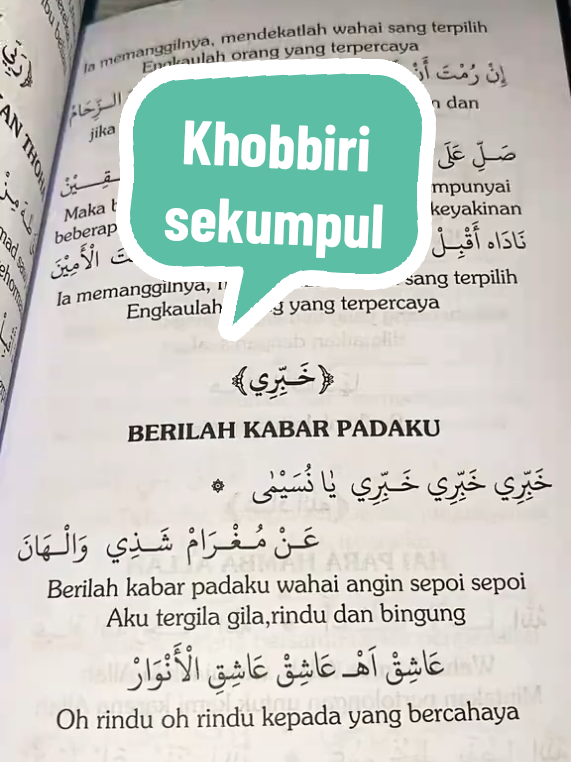 Ia memanggilnya, mendekatlah wahai sang terpilih
Engkaulah orang yang terpercaya
إِنْ رُمْتَ أَنْ
الـزِّحَامْ
jika
dan
صَـلِّ عَلَى
Maka
mpunyai
beberap
keyakinan
نَادَاه أَقْبِـلْ
الْأَمِيْنَ
Ia memanggilnya,
sang terpilih
Engkaulah
yang terpercaya
Khobbiri
sekumpul
﴿خَـبِّرِي﴾
BERILAH KABAR PADAKU
خَبِّرِي خَبِّرِي خَـبِّرِي يٰا نُسَيْمٰى ۞
عَـنْ مُـغْـرَامْ شَـذِي وَالْـهَانَ
Berilah kabar padaku wahai angin sepoi sepoi
Aku tergila gila,rindu dan bingung
عَاشِقْ اَهْـ عَاشِقْ عَاشِقِ الْأَنْوَارْ
Oh rindu oh rindu kepada yang bercahaya